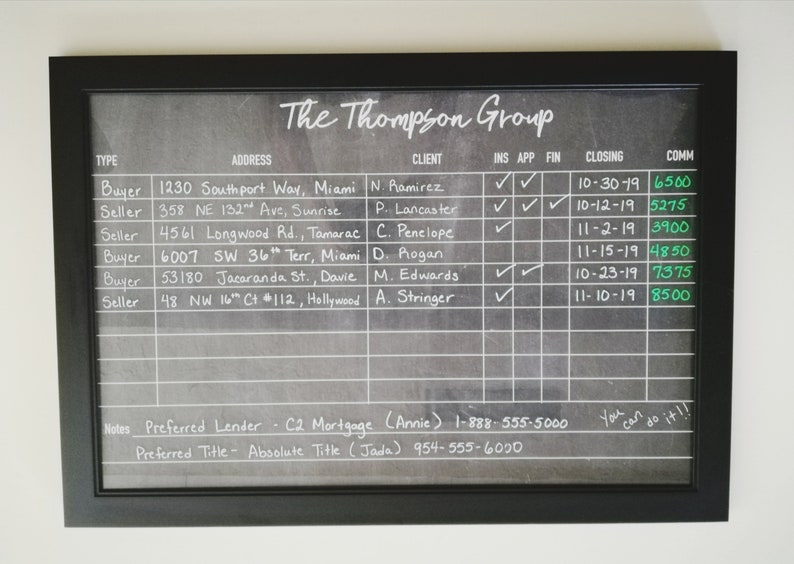 The Thompson Group
TYPE ADDRESS CLIENT INS APP FIN CLOSING COMM
Buyer 1230 Southport Way, Miami N. Ramirez ✓ ✓ 10-30-19 6500
Seller 358 NE 132nd Ave, Sunrise P. Lancaster ✓ ✓ ✓ 10-12-19 5275
Seller 4561 Longwood Rd., Tamarac C. Penelope ✓ 11-2-19 3900
Buyer 6007 SW 36th Terr, Miami D. Rogan 11-15-19 4850
Buyer 53180 Jacaranda St., Davie M. Edwards ✓ ✓ 10-23-19 7375
Seller 48 NW 16th Ct #112, Hollywood A. Stringer ✓ 11-10-19 8500
Notes Preferred Lender - C2 Mortgage (Annie) 1-888-555-5000
You can do it!!
Preferred Title - Absolute Title (Jada) 954-555-6000